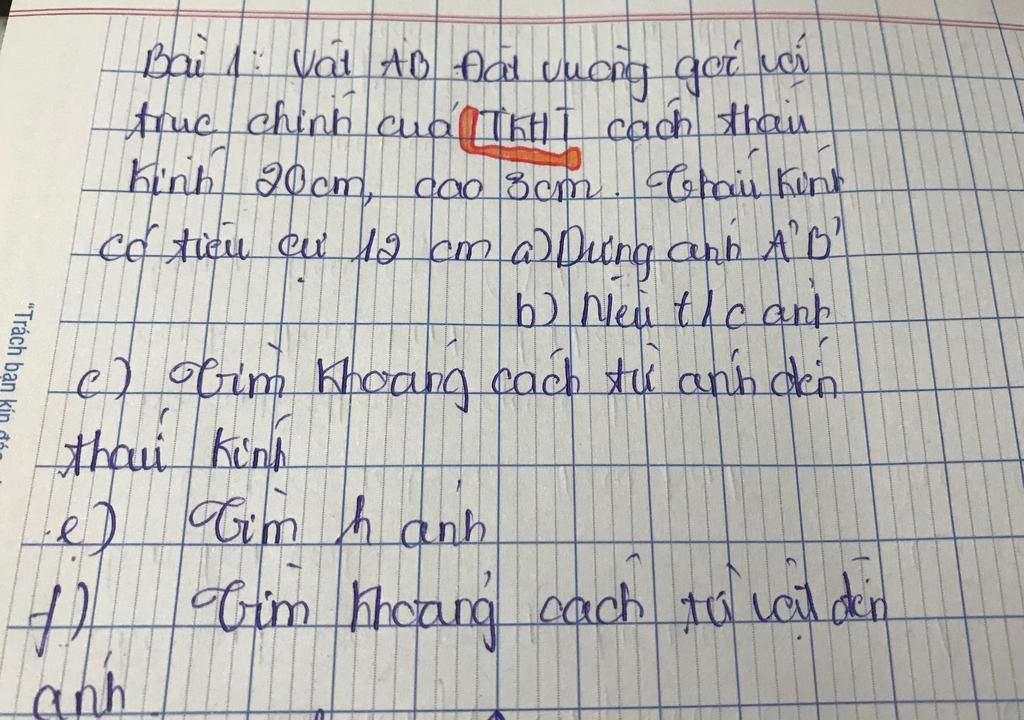 Bài 1: Vật AB Đặt vuông góc với
trục chính của TKHT cách thấu
kính 20cm, cao 3cm. Thấu kính
có tiêu cự 12 cm a) Dựng ảnh A'B'
b) Nêu t/c ảnh
c) Tìm khoảng cách từ ảnh đến
thấu kính
e) Tìm h ảnh
f) Tìm khoảng cách từ vật đến
ảnh
"Trách bạn kín